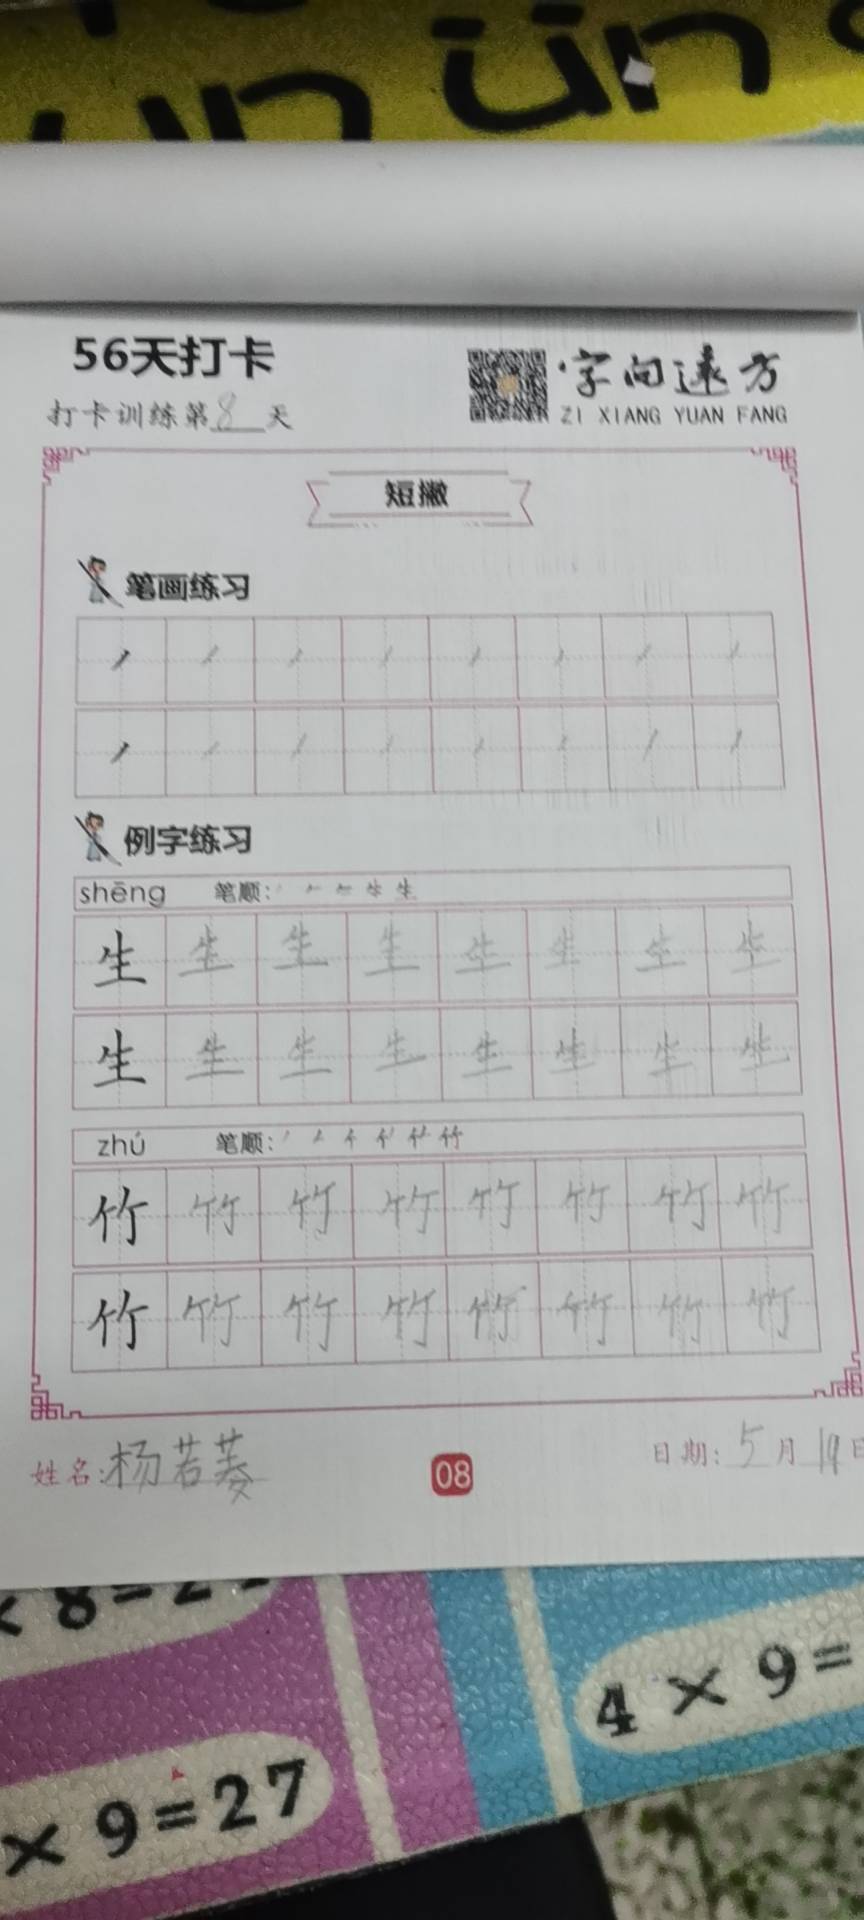 ün ün
56天打卡
字向远方
打卡训练第8天
ZI XIANG YUAN FANG
短撇
笔画练习
例字练习
shēng 笔顺:
生 生 生 生 生 生 生 生
生 生 生 生 生 生 生 生
zhú 笔顺:
竹 竹 竹 竹 竹 竹 竹 竹
竹 竹 竹 竹 竹 竹 竹 竹
姓名:杨若蒌
08
日期:5月19日
8=2
4×9=
×9=27